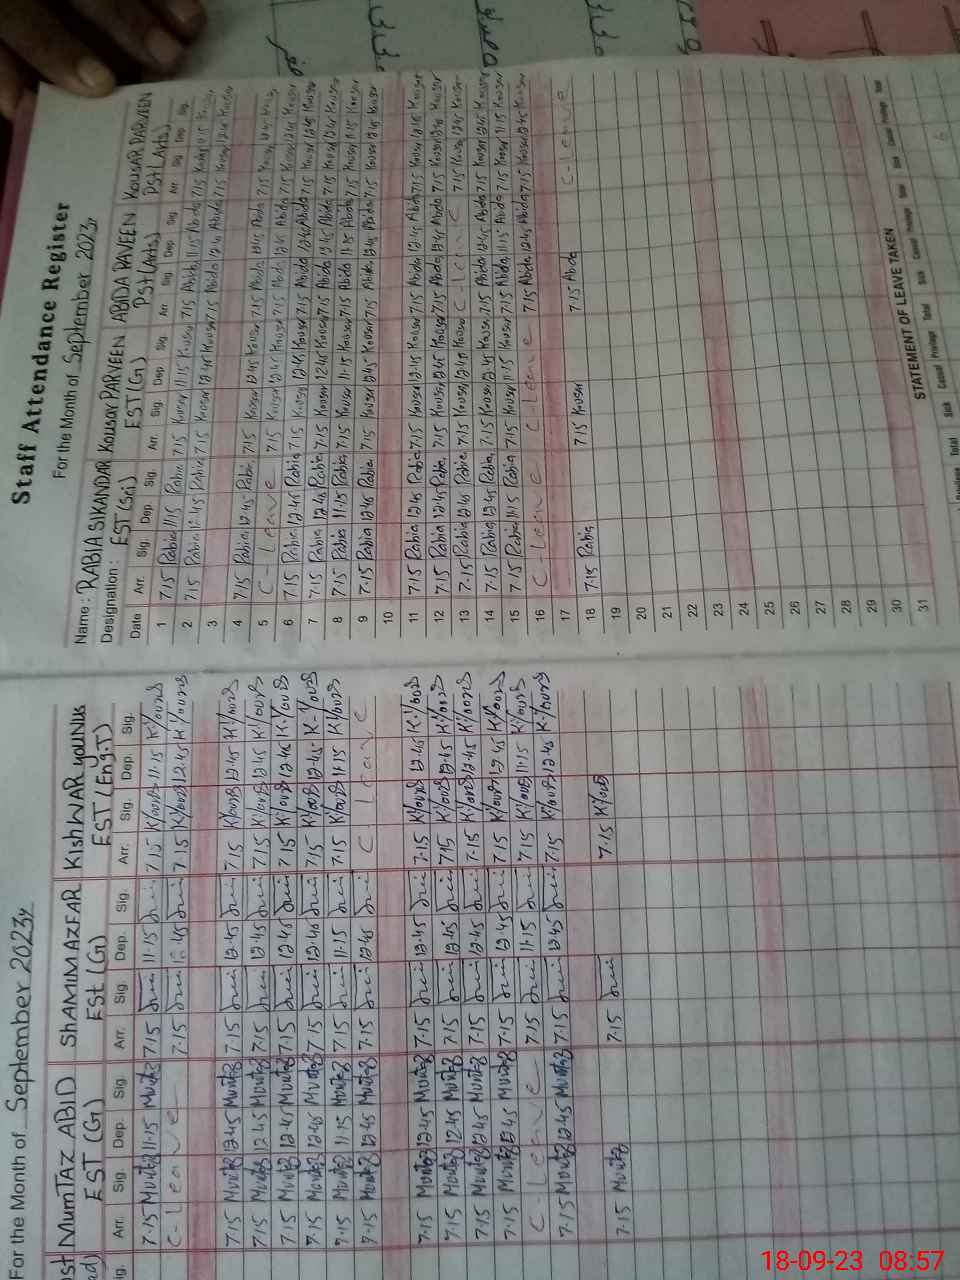 Staff Attendance Register
For the Month of September 2023y
Name : RABIA SIKANDAR KOUSAR PARVEEN ABIDA PAVEEN KOUSAR PARVEEN
Designation : EST (Sci) EST (G) PSt (Arts) PSt (Arts)
Date Arr. Sig. Dep. Sig. Arr. Sig. Dep Sig. Arr Sig Dep. Sig. Arr. Sig Dep Sig.
1 7.15 Rabia 11.15 Rabia 7.15 Kousar 11.15 Kousar 7.15 Abida 11.15 Abida 7.15 Kousar 11.15 Kousar
2 7.15 Rabia 12.45 Rabia 7.15 Kousar 12.45 Kousar 7.15 Abida 12.45 Abida 7.15 Kousar 12.45 Kousar
3
4 7.15 Rabia 12.45 Rabia 7.15 Kousar 12.45 Kousar 7.15 Abida 12.45 Abida 7.15 Kousar 12.45 Kousar
5 C - Leave 7.15 Kousar 12.45 Kousar 7.15 Abida 12.45 Abida 7.15 Kousar 12.45 Kousar
6 7.15 Rabia 12.45 Rabia 7.15 Kousar 12.45 Kousar 7.15 Abida 12.45 Abida 7.15 Kousar 12.45 Kousar
7 7.15 Rabia 12.45 Rabia 7.15 Kousar 12.45 Kousar 7.15 Abida 12.45 Abida 7.15 Kousar 12.45 Kousar
8 7.15 Rabia 11.15 Rabia 7.15 Kousar 11.15 Kousar 7.15 Abida 11.15 Abida 7.15 Kousar 11.15 Kousar
9 7.15 Rabia 12.45 Rabia 7.15 Kousar 12.45 Kousar 7.15 Abida 12.45 Abida 7.15 Kousar 12.45 Kousar
10
11 7.15 Rabia 12.45 Rabia 7.15 Kousar 12.45 Kousar 7.15 Abida 12.45 Abida 7.15 Kousar 12.45 Kousar
12 7.15 Rabia 12.45 Rabia 7.15 Kousar 12.45 Kousar 7.15 Abida 12.45 Abida 7.15 Kousar 12.45 Kousar
13 7.15 Rabia 12.45 Rabia 7.15 Kousar 12.45 Kousar C - Leave 7.15 Kousar 12.45 Kousar
14 7.15 Rabia 12.45 Rabia 7.15 Kousar 12.45 Kousar 7.15 Abida 12.45 Abida 7.15 Kousar 12.45 Kousar
15 7.15 Rabia 11.15 Rabia 7.15 Kousar 11.15 Kousar 7.15 Abida 11.15 Abida 7.15 Kousar 11.15 Kousar
16 C - Leave C - Leave 7.15 Abida 12.45 Abida 7.15 Kousar 12.45 Kousar
17
18 7.15 Rabia 7.15 Kousar 7.15 Abida C - Leave
19
20
21
22
23
24
25
26
27
28
29
30
31
STATEMENT OF LEAVE TAKEN
Sick Casual Privilege Total Sick Casual Privilege Total Sick Casual Privilege Total
For the Month of September 2023y
MUMTAZ ABID SHAMIM AZFAR KISHWAR YOUNUS
EST (G) ESt (G) EST (Eng.T)
Arr. Sig. Dep. Sig. Arr. Sig. Dep. Sig. Arr. Sig. Dep. Sig.
7.15 11.15 7.15 11.15 7.15 11.15
C - Leave 7.15 12.45 7.15 12.45
7.15 12.45 7.15 12.45 7.15 12.45
7.15 12.45 7.15 12.45 7.15 12.45
7.15 12.45 7.15 12.45 7.15 12.45
7.15 12.45 7.15 12.45 7.15 12.45
7.15 11.15 7.15 11.15 7.15 11.15
7.15 12.45 7.15 12.45 C - Leave
7.15 12.45 7.15 12.45 7.15 12.45
7.15 12.45 7.15 12.45 7.15 12.45
7.15 12.45 7.15 12.45 7.15 12.45
7.15 12.45 7.15 12.45 7.15 12.45
C - Leave 7.15 11.15 7.15 11.15
7.15 12.45 7.15 12.45 7.15 12.45
7.15 7.15 7.15
18-09-23 08:57